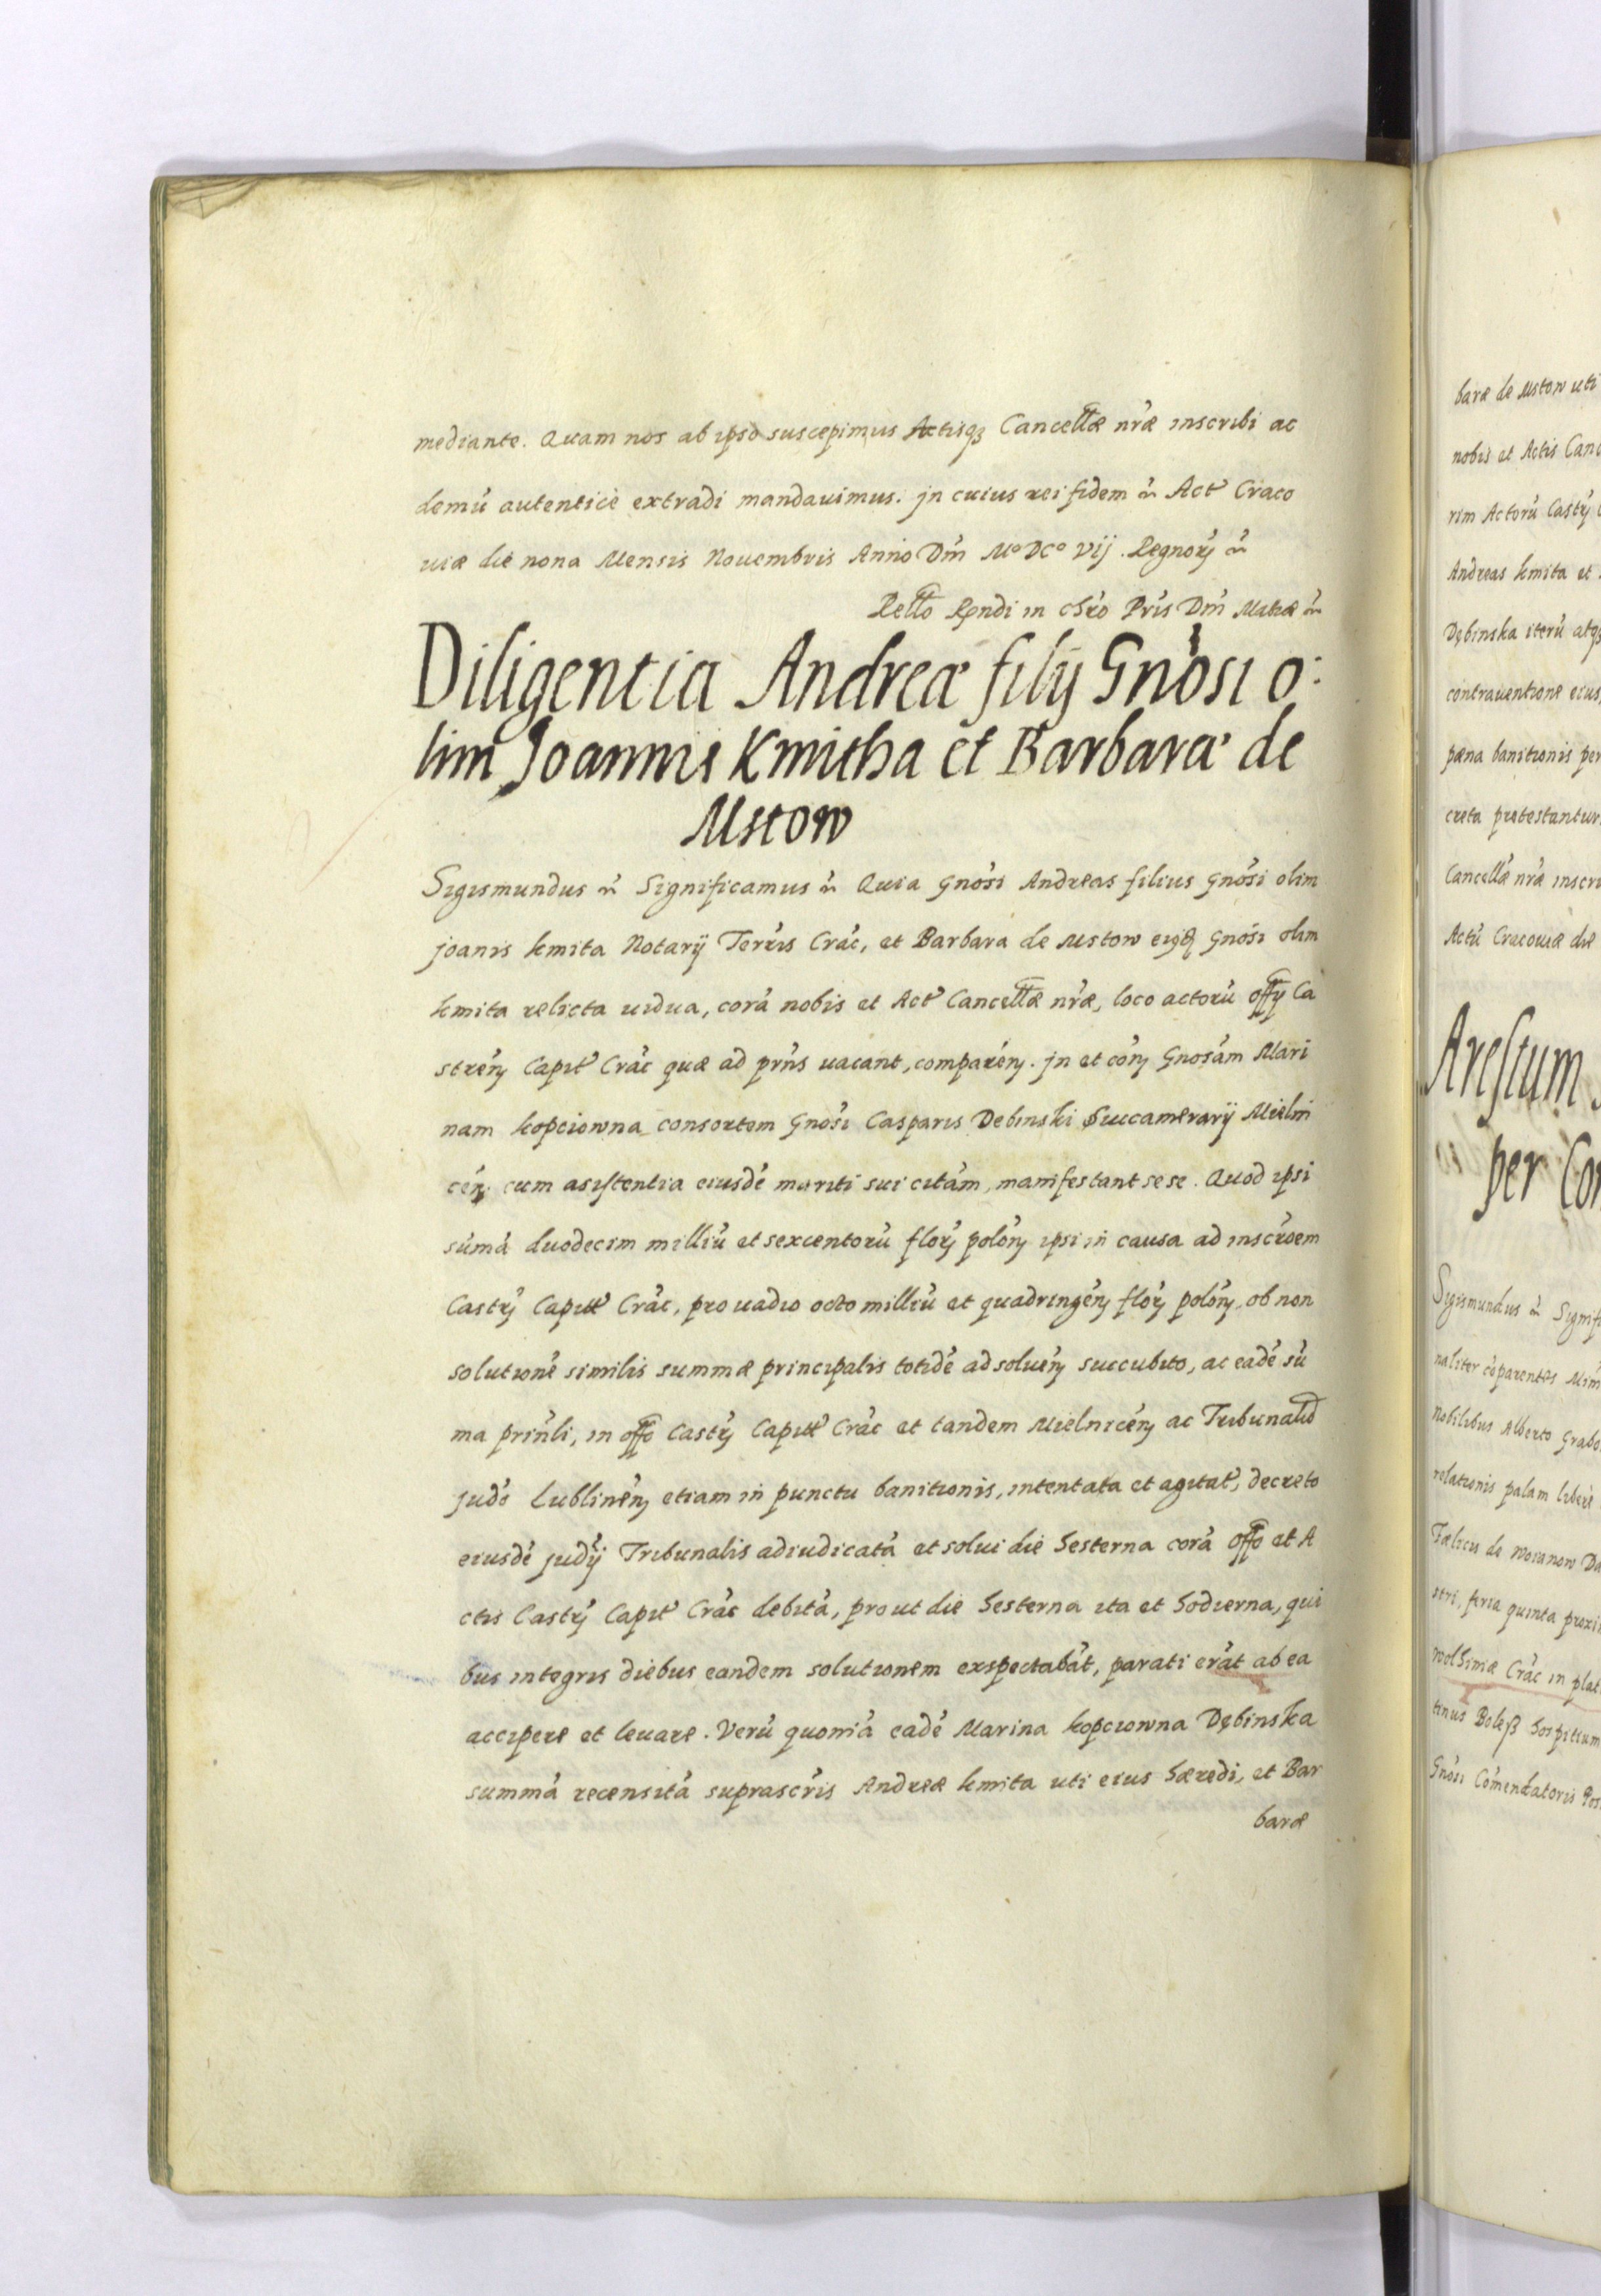 mediante. Quam nos ab ipso suscepimus Actisqȝ Cancellæ nræ inscribi ac
demú autenticè extradi mandauimus. jn cuius rei fidem &c Act Craco
uiæ die nona Mensis Nouembris Anno Dni Mº DCº vij. Regnorȝ &c
Rello Rȩndi in chro Pris Dni Mathæ &c
Diligentia Andreæ filij Gnosi o:
lim Joannis Kmitha et Barbaræ de
Mstow
Sigismundus &c Significamus &c Quia Gnosi Andreas filius Gnosi olim
joanis kmita Notarij Terris Crac, et Barbara de Mstow eiqȝ Gnosi olim
kmita relicta uidua, corá nobis et Act Cancellæ nræ, loco actorú offij Ca
streń Capit Crac quæ ad prns uacant, compareń. jn et coń Gnosam Mari
nam kopciowna consortem Gnosi Casparis Debinski Succamerarij Mielni
ceń cum asistentia eiusdé mariti sui citám, manifestant sese. Quod ipsi
súmá duodecim milliú et sexcentorú florȝ poloń ipsi in causa ad inscroem
Castrȝ Capitt Crac, pro uadio octo milliú et quadringeń florȝ poloń, ob non
solutioné similis summæ principalis totidé ad solueń succubito, ac eadé sú
ma prinli, in offo Castrȝ Capitt Crac et tandem Mielniceń ac Tribunalid
judo Lublineń etiam in punctu banitionis, intentata et agitat, decreto
eiusdé judij Tribunalis adiudicatá et solui die hesterna corá offo et A
ctis Castrȝ Capit Crac debitá, prout die hesterna ita et hodierna, qui
bus integris diebus eandem solutionem exspectabát, parati erát ab ea
accipere et leuare. Verú quoniá eadé Marina kopciowna Dębinska
summá recensitá suprascris Andreæ kmita uti eius hæredi, et Bar
baræ
baræ de Mstow uti
nobis et Actis Canc
rim Actorú Castrȝ
Andreas kmita et
Dębinska iterú atqȝ
contrauentione eius,
pæna banitionis per
creta protestantur
Cancellæ nræ inscri
Actú Cracouiæ die
Arestum
per Con
Sigismundus &c Signifi
naliter coparentes
nobilibus Alberto Grabo
relationis palam liberè
Fælicis de
stri, feria quinta proxi
Crac in plat
tinus Boleß hospitium
Gnosi